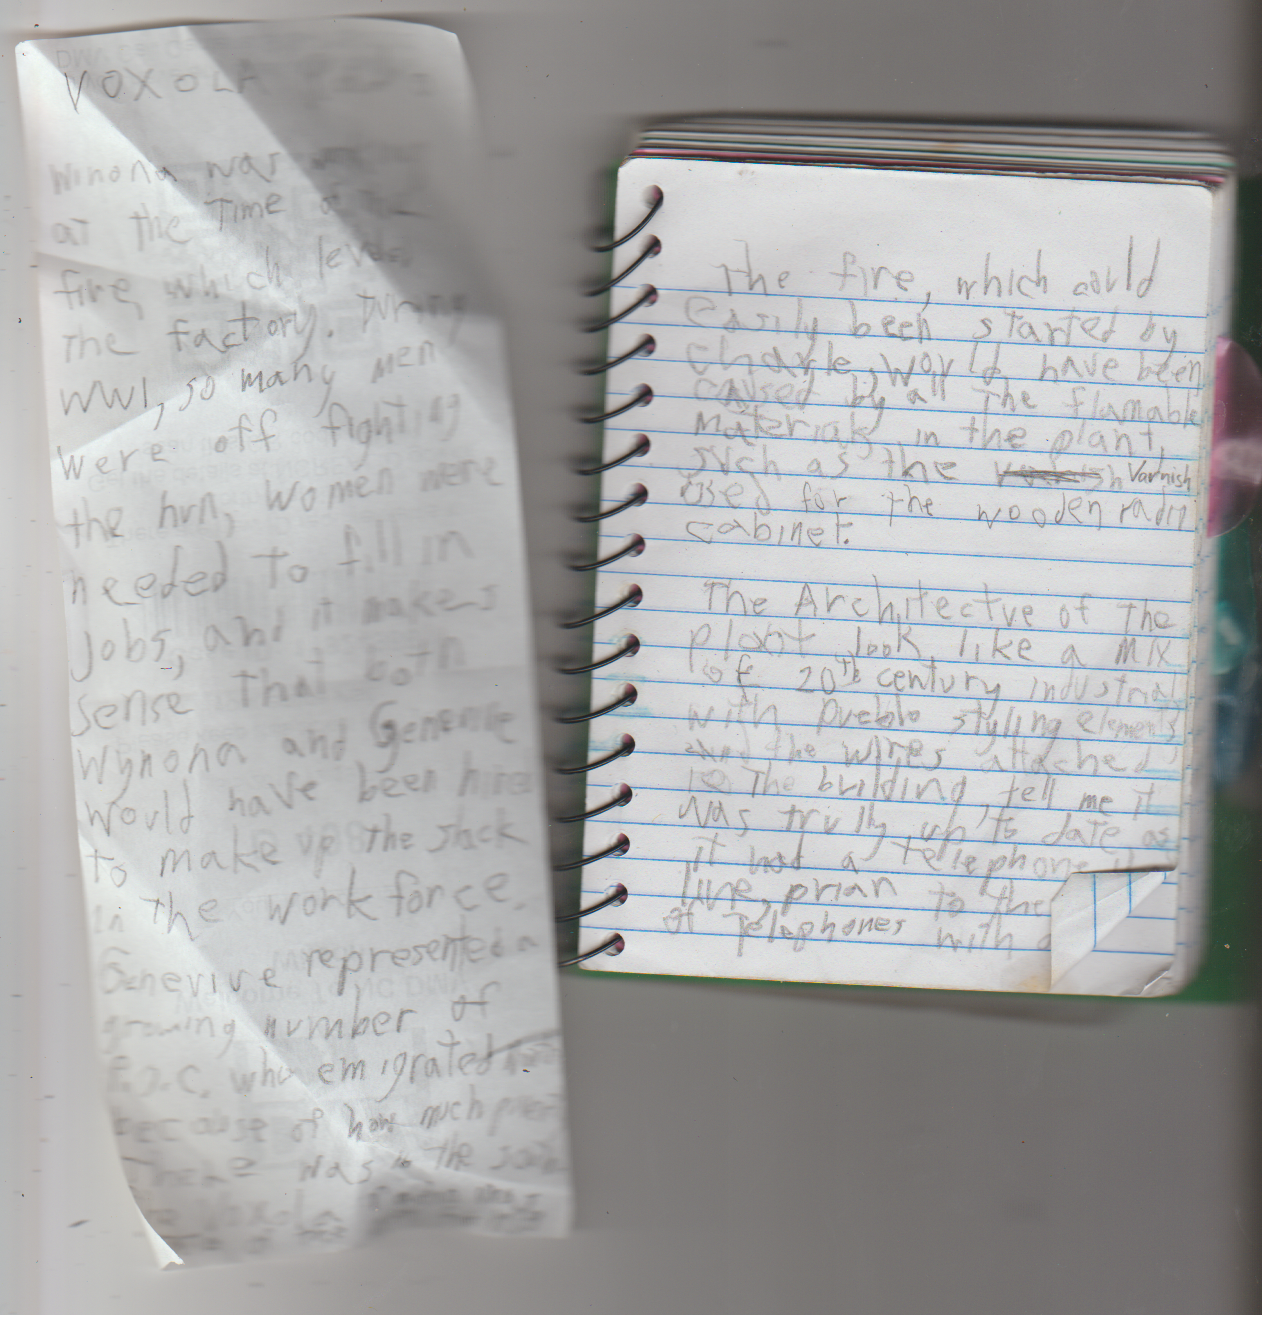 VOXOLA
Winona was
at the Time of the
fire, which level
The factory. During
WW1, so many men
were off fighting
the hun, women were
needed to fill in
jobs, and it makes
sense That both
Wynona and Genevive
would have been hired
to make up the slack
in The workforce.
Genevive represented a
growing number of
P.O.C. who emigrated
because of how much
There was in the south
Voxola
The fire, which could
easily been started by
would have been
caused by all The flamable
Materials in the plant,
such as the Varnish
used for the wooden radio
cabinet.
The Architectve of The
plant look like a Mix
of 20th century industrial
with pueblo styling elements
and the wires attached
to The building, tell me it
was trully up to date as
it had a telephone
line, prian to the
of Telephones with